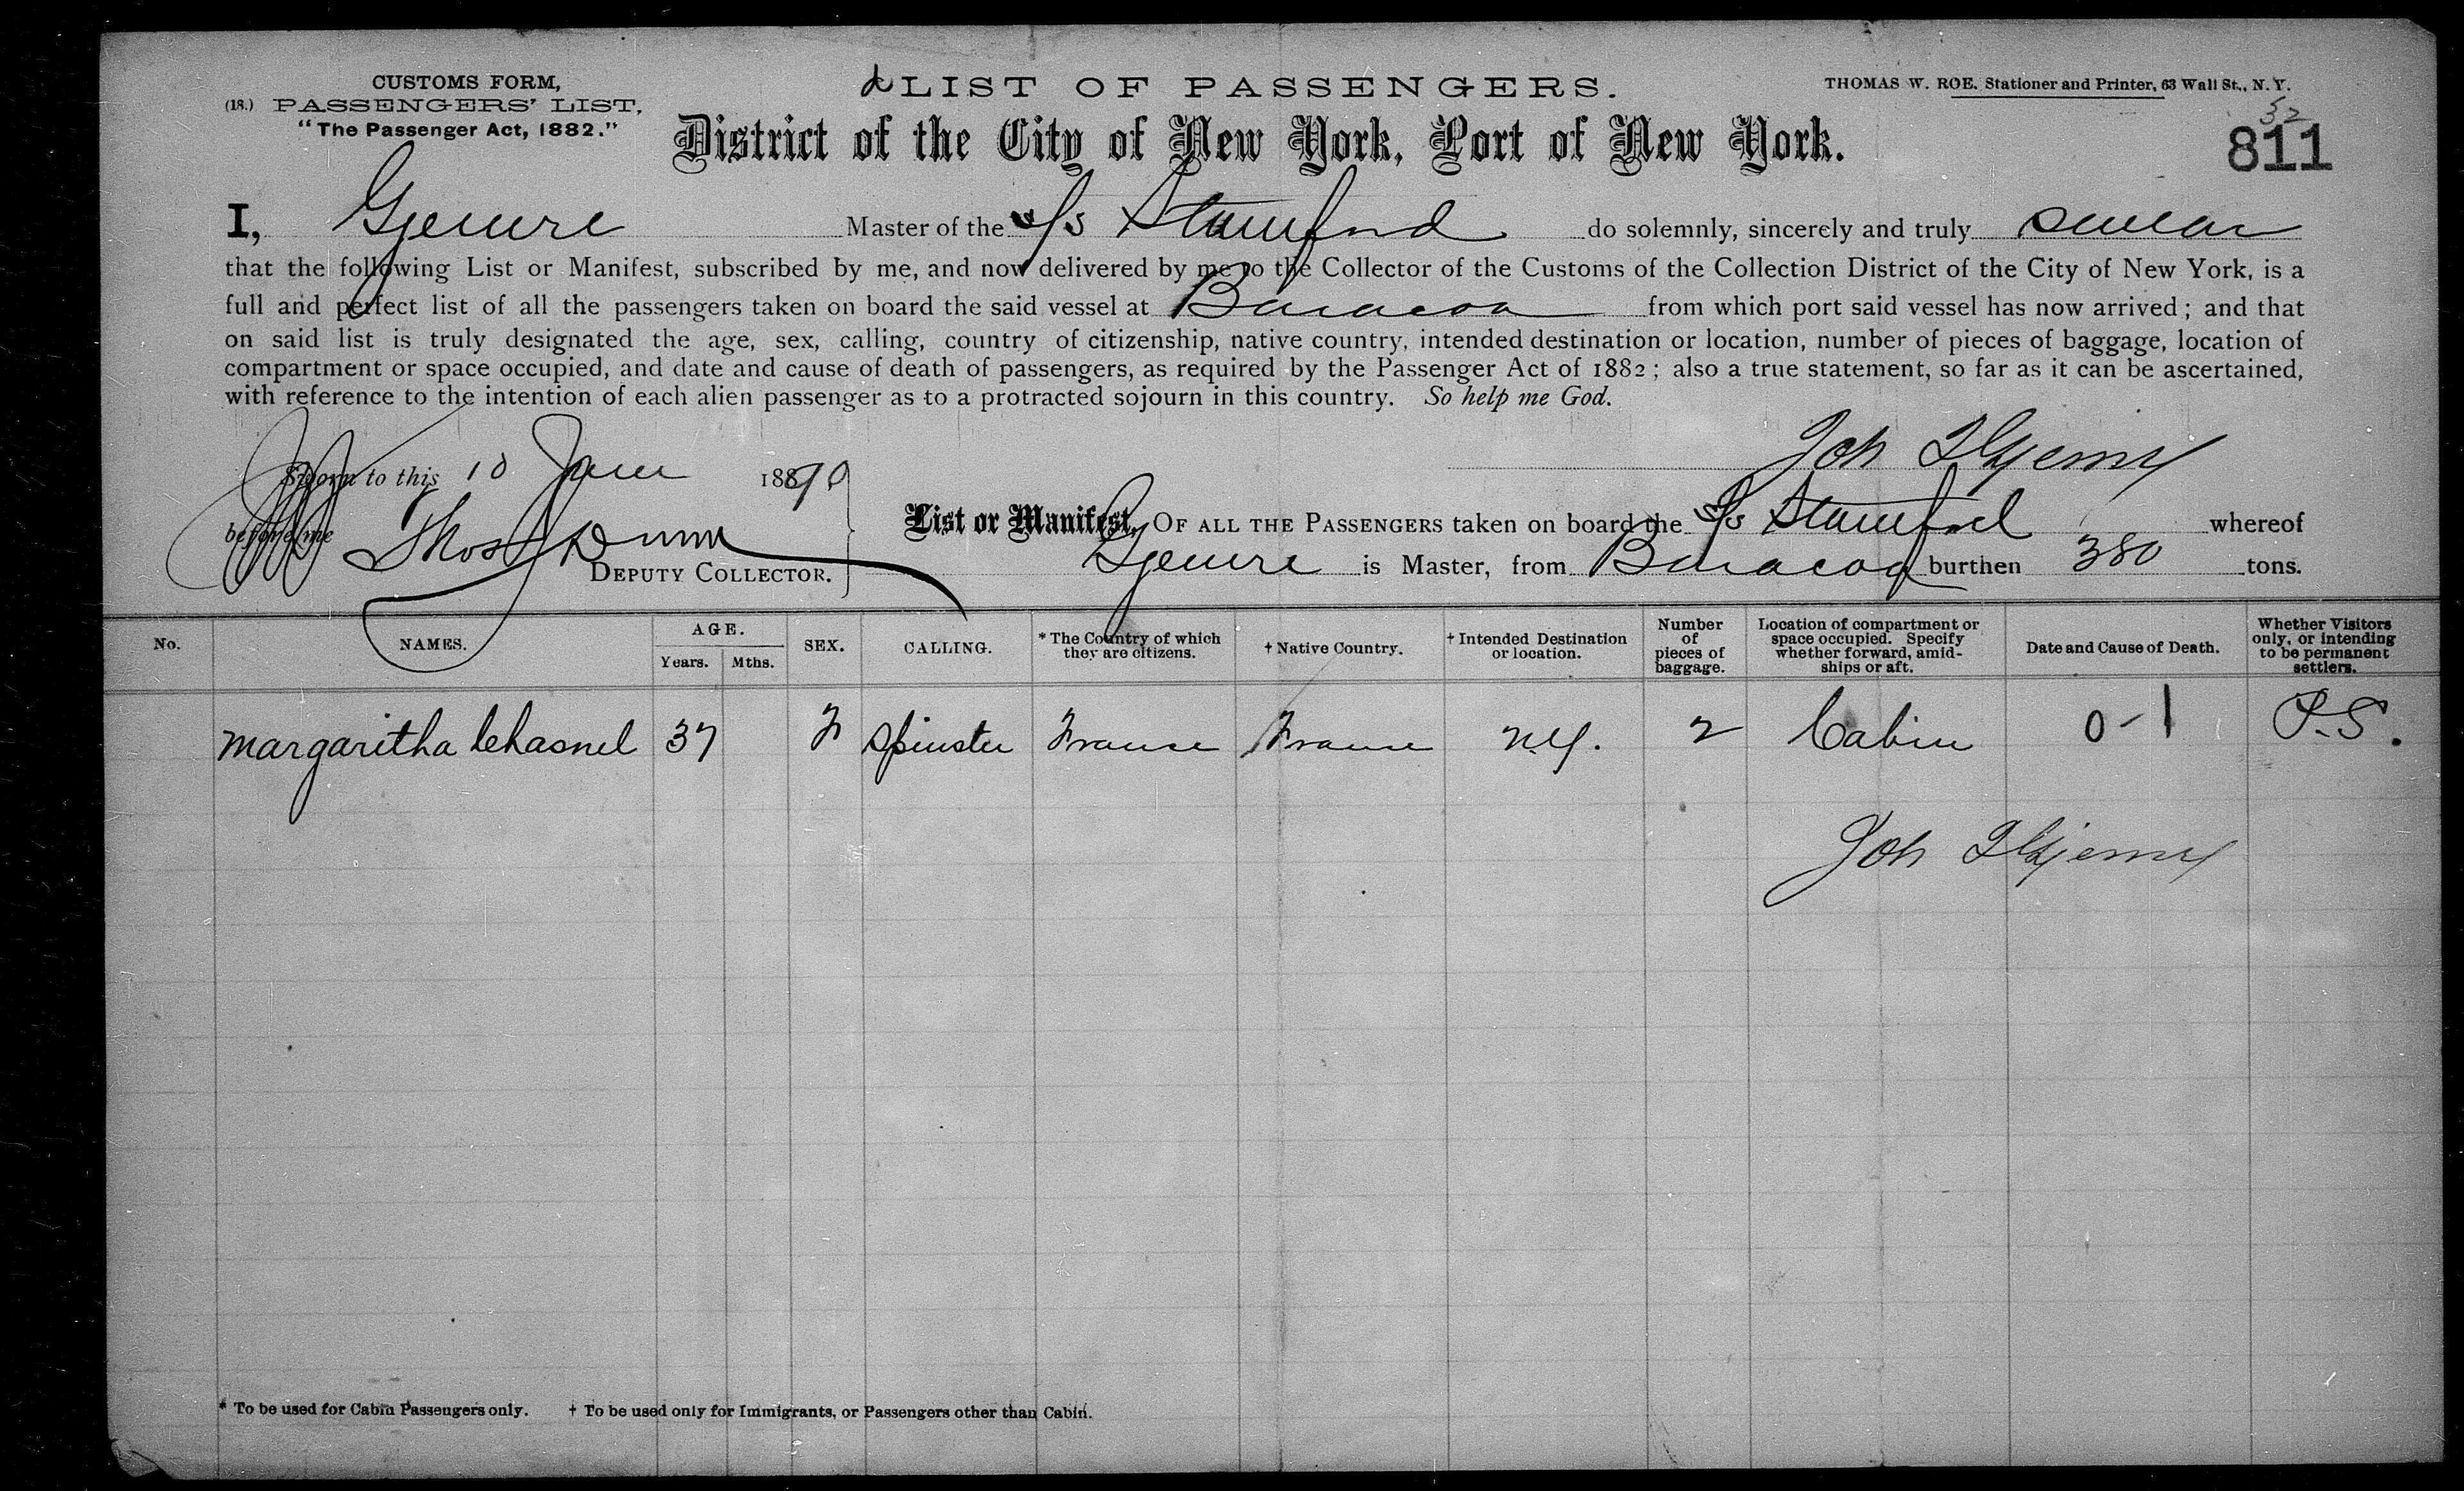 CUSTOMS FORM,
(18.) PASSENGERS' LIST,
"The Passenger Act, 1882."
LIST OF PASSENGERS.
THOMAS W. ROE. Stationer and Printer, 63 Wall St., N. Y.
52
811
District of the City of New York, Port of New York.
I, Master of the S/s Stamford do solemnly, sincerely and truly swear
that the following List or Manifest, subscribed by me, and now delivered by me to the Collector of the Customs of the Collection District of the City of New York, is a
full and perfect list of all the passengers taken on board the said vessel at Baracoa from which port said vessel has now arrived; and that
on said list is truly designated the age, sex, calling, country of citizenship, native country, intended destination or location, number of pieces of baggage, location of
compartment or space occupied, and date and cause of death of passengers, as required by the Passenger Act of 1882; also a true statement, so far as it can be ascertained,
with reference to the intention of each alien passenger as to a protracted sojourn in this country. So help me God.
Joh
Sworn to this 10 1890
before me Thos Dunn
DEPUTY COLLECTOR.
List or Manifest, OF ALL THE PASSENGERS taken on board the S/s Stamford whereof
is Master, from Baracoa burthen 380 tons.
No. NAMES. AGE. Years. Mths. SEX. CALLING. * The Country of which they are citizens. † Native Country. † Intended Destination or location. Number of pieces of baggage. Location of compartment or space occupied. Specify whether forward, amidships or aft. Date and Cause of Death. Whether Visitors only, or intending to be permanent settlers.
Margaritha Chasnel 37 F Spinster France France N.Y. 2 Cabin 0-1 P.S.
Joh
* To be used for Cabin Passengers only. † To be used only for Immigrants, or Passengers other than Cabin.